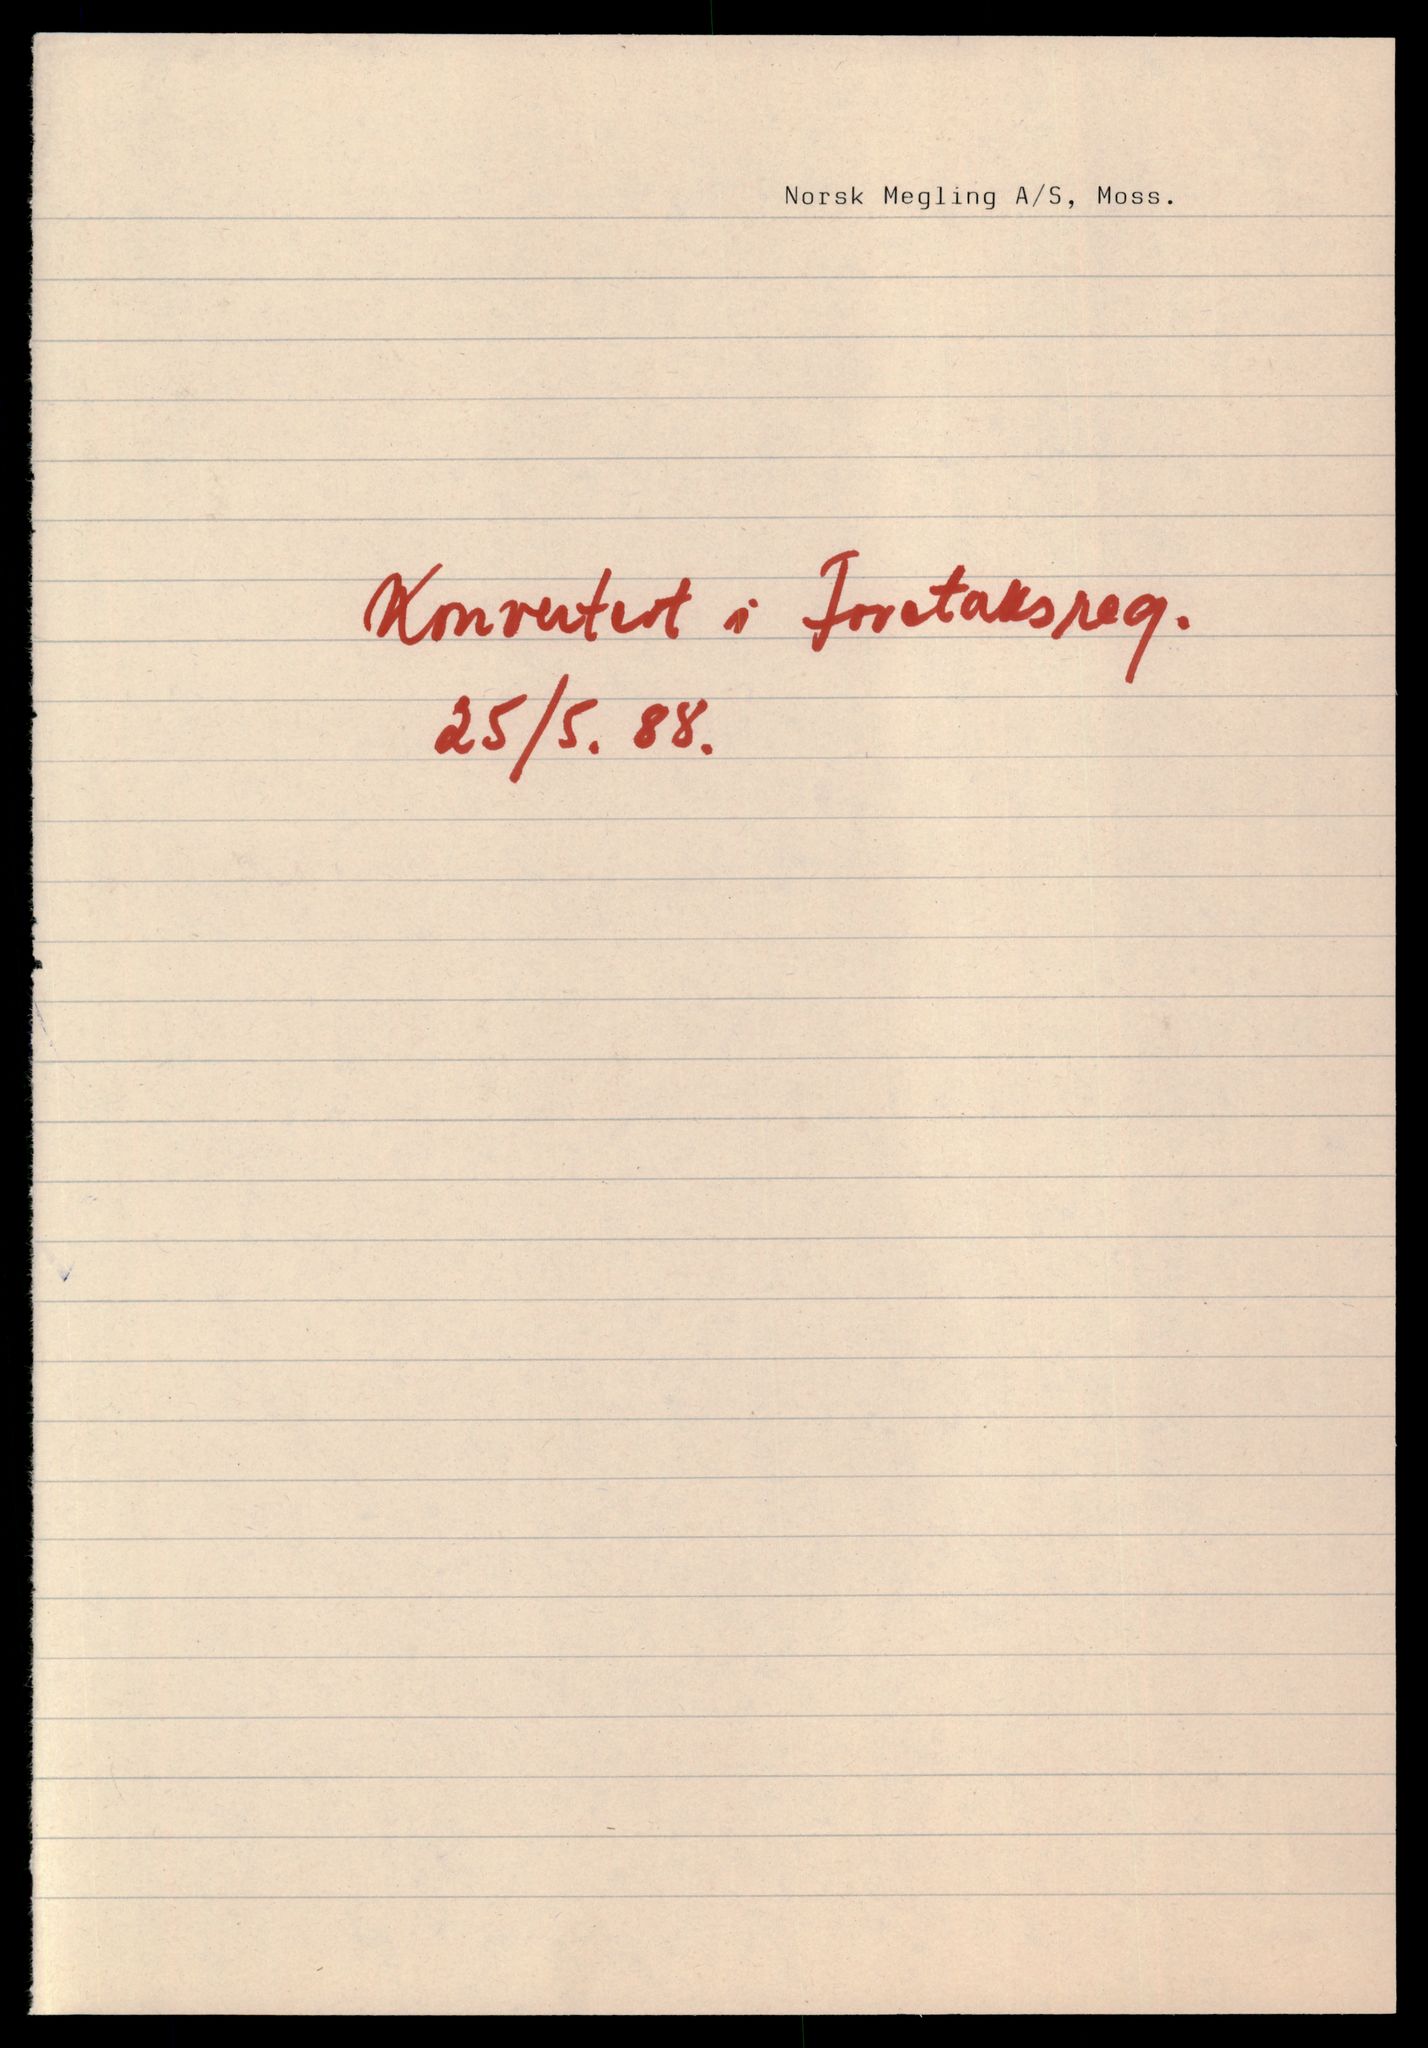 Norsk Megling A/S, Moss.
Konvertert i Foretaksreg.
25/5. 88.